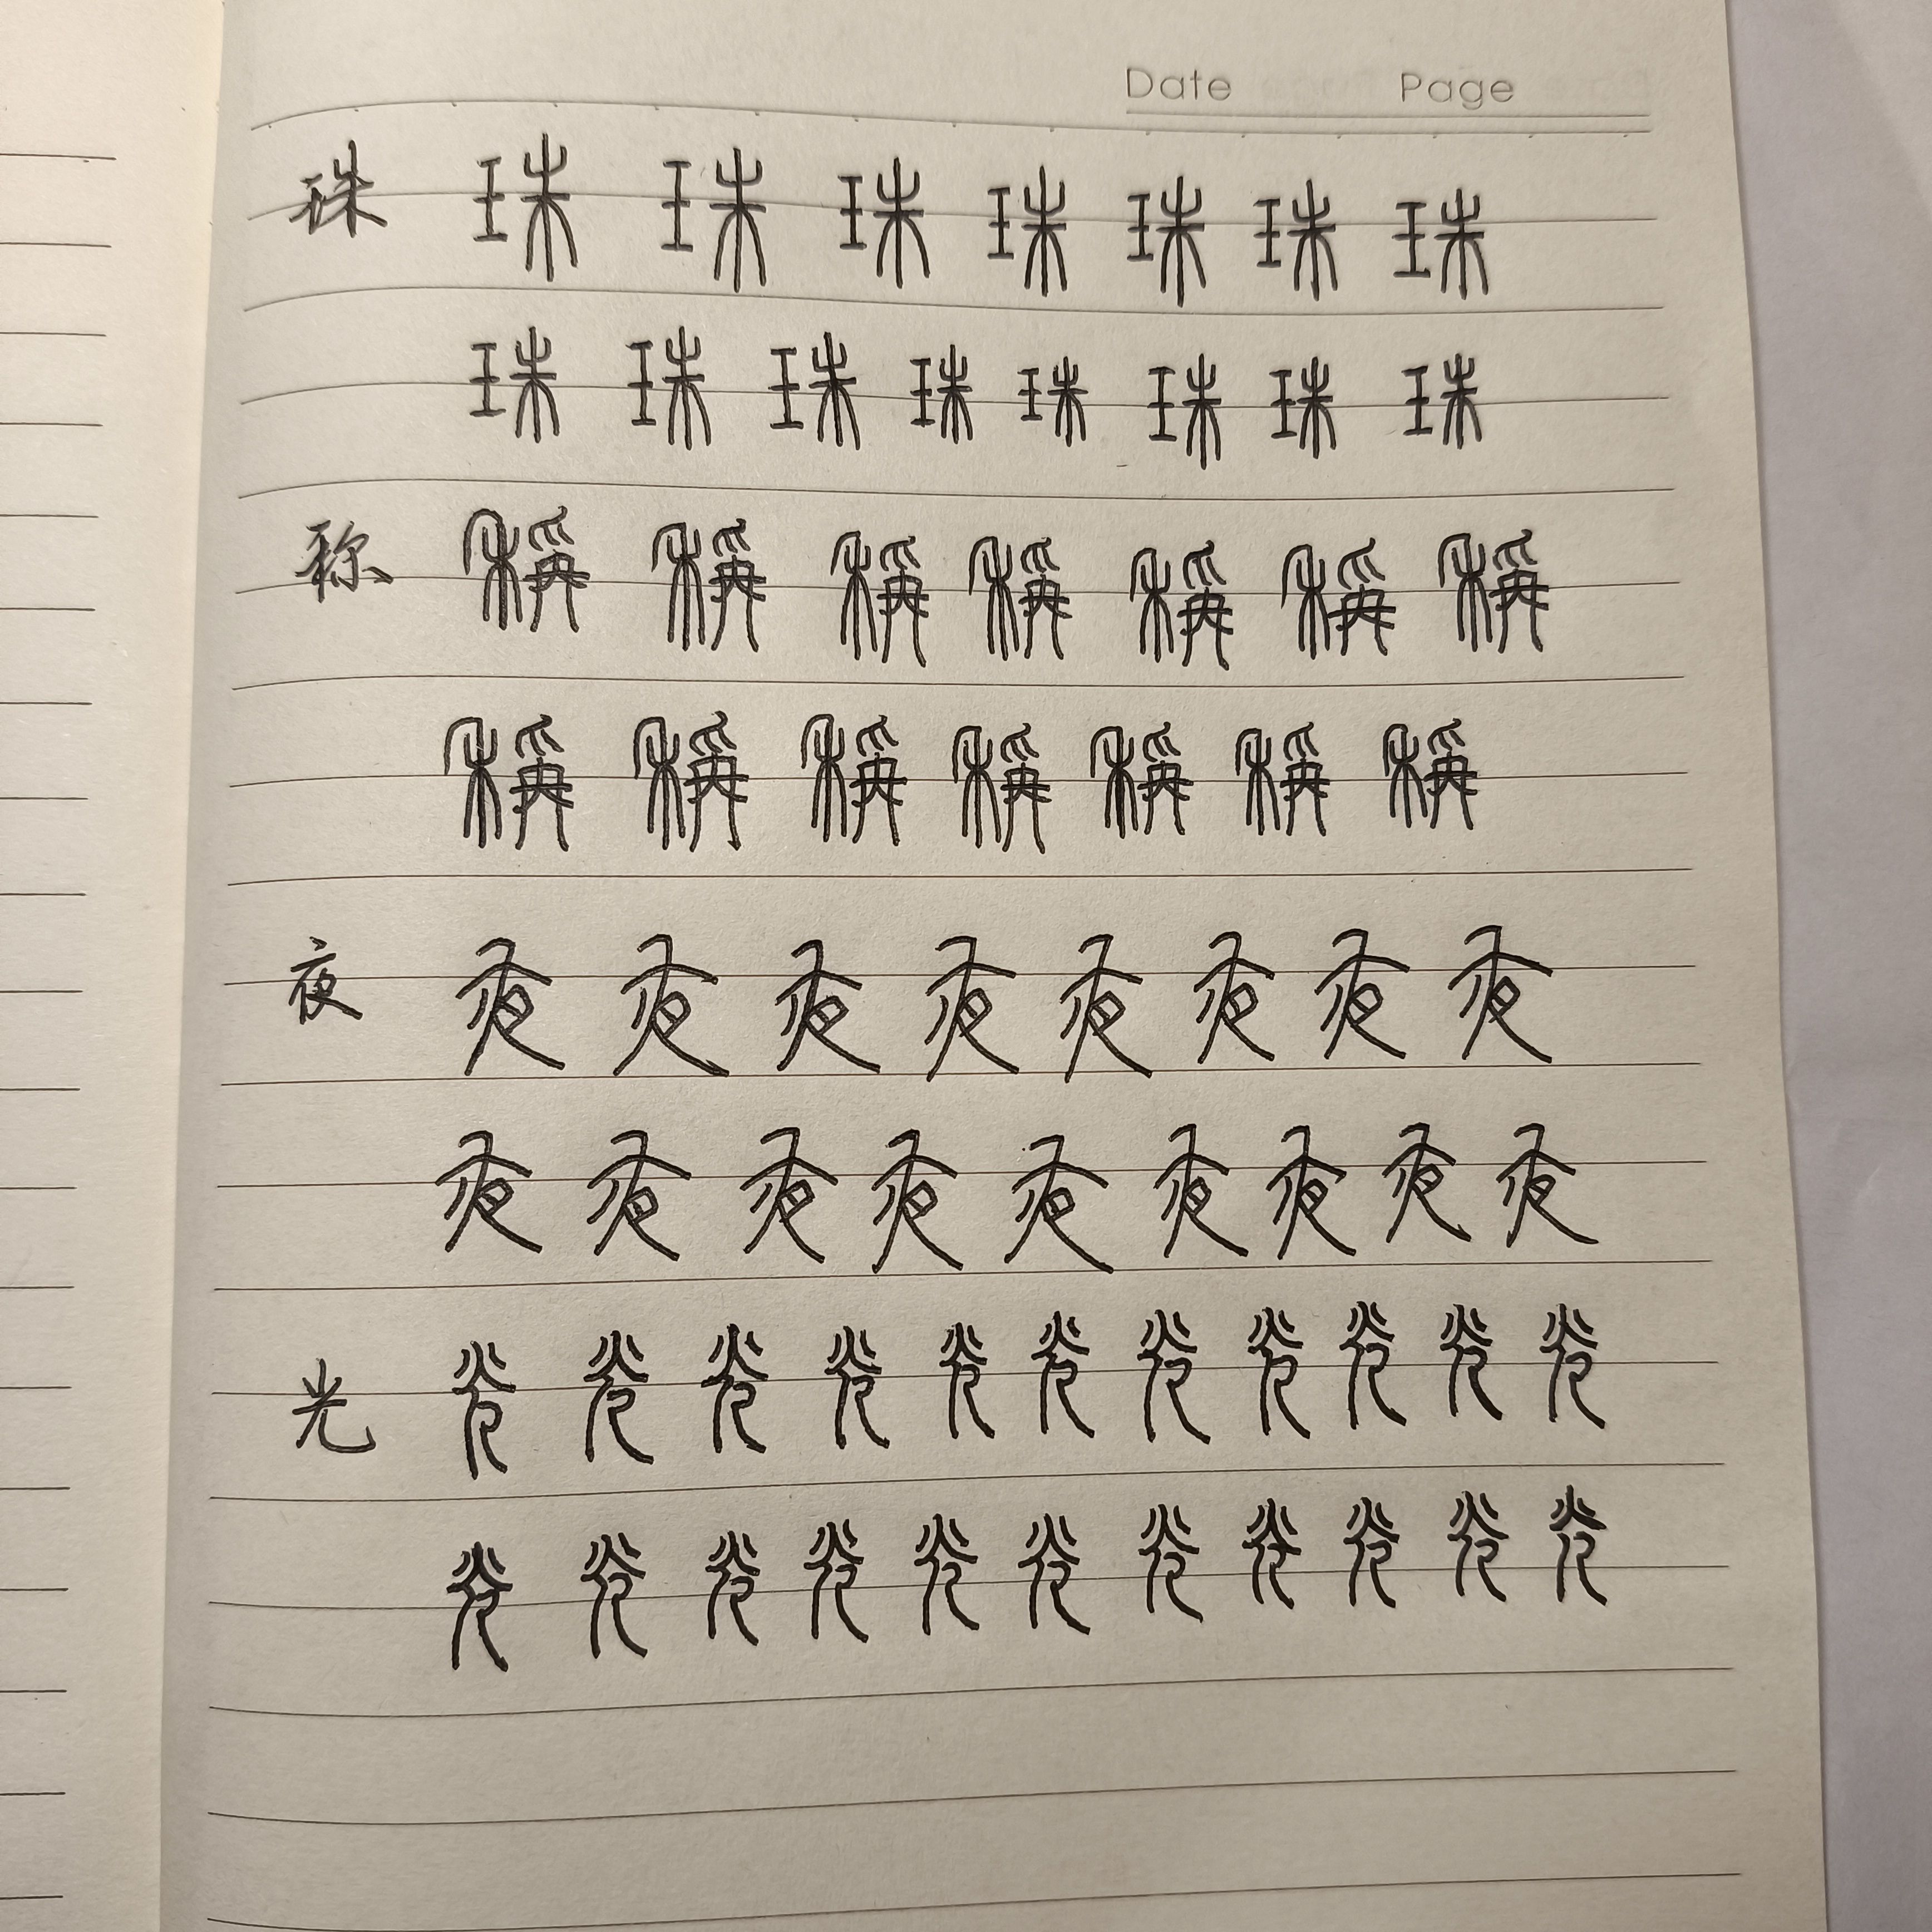 Date Page
珠 珠 珠 珠 珠 珠 珠 珠
珠 珠 珠 珠 珠 珠 珠 珠
称 稱 稱 稱 稱 稱 稱 稱
稱 稱 稱 稱 稱 稱 稱
夜 夜 夜 夜 夜 夜 夜 夜 夜
夜 夜 夜 夜 夜 夜 夜 夜 夜
光 光 光 光 光 光 光 光 光 光 光 光
光 光 光 光 光 光 光 光 光 光 光